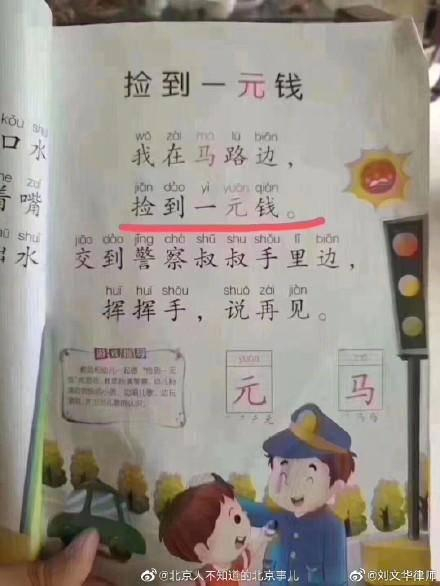 捡到一元钱
wǒ zài mǎ lù biān
我在马路边，
jiǎn dào yì yuán qián
捡到一元钱。
jiāo dào jǐng chá shū shu shǒu lǐ biān
交到警察叔叔手里边，
huī huī shǒu shuō zài jiàn
挥挥手，说再见。
kǒu shu
口水
zuǐ
着嘴
shuǐ
水
游戏指导
yuán
元
马
@北京人不知道的北京事儿
@刘文华律师